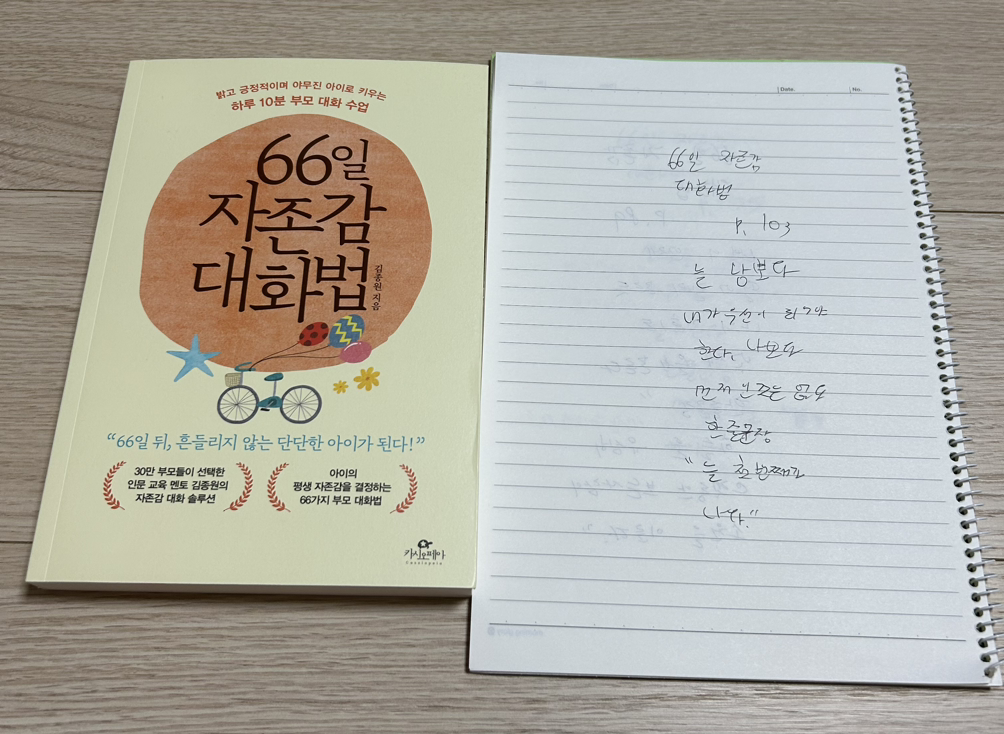 밝고 긍정적이며 야무진 아이로 키우는
하루 10분 부모 대화 수업
66일
자존감
대화법
김종원 지음
“66일 뒤, 흔들리지 않는 단단한 아이가 된다!”
30만 부모들이 선택한
인문 교육 멘토 김종원의
자존감 대화 솔루션
아이의
평생 자존감을 결정하는
66가지 부모 대화법
카시오페아
Cassiopeia
Date.
No.
66일 자존감
대화법
p. 103
늘 남보다
내가 우선이 되어야
한다. 나보다
먼저 난
한 줄 문장
“늘 첫 번째가
나다.”